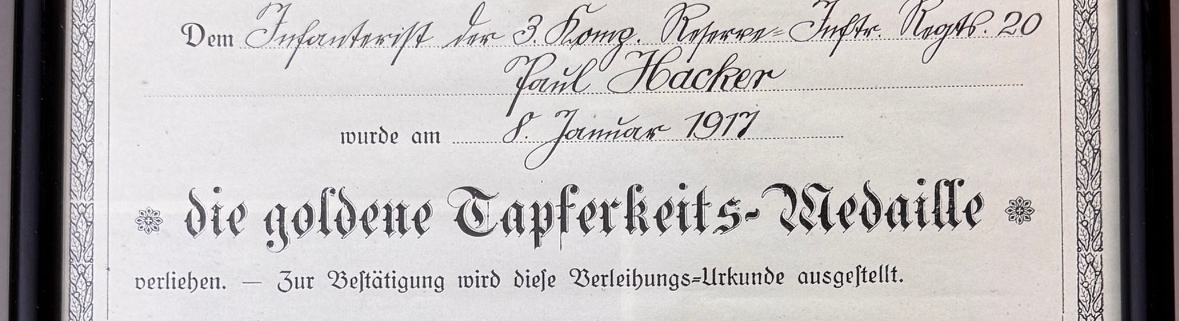 Dem Infanterist der 3. Komp. Reserve-Inftr. Regts. 20
Paul Hacker
wurde am 8. Januar 1917
die goldene Tapferkeits-Medaille
verliehen. — Zur Bestätigung wird diese Verleihungs-Urkunde ausgestellt.